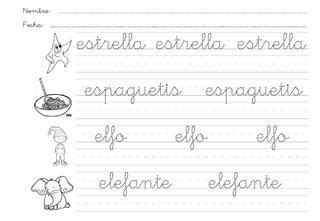 Nombre:
Fecha:
estrella estrella estrella
espaguetis espaguetis
elfo elfo elfo
elefante elefante